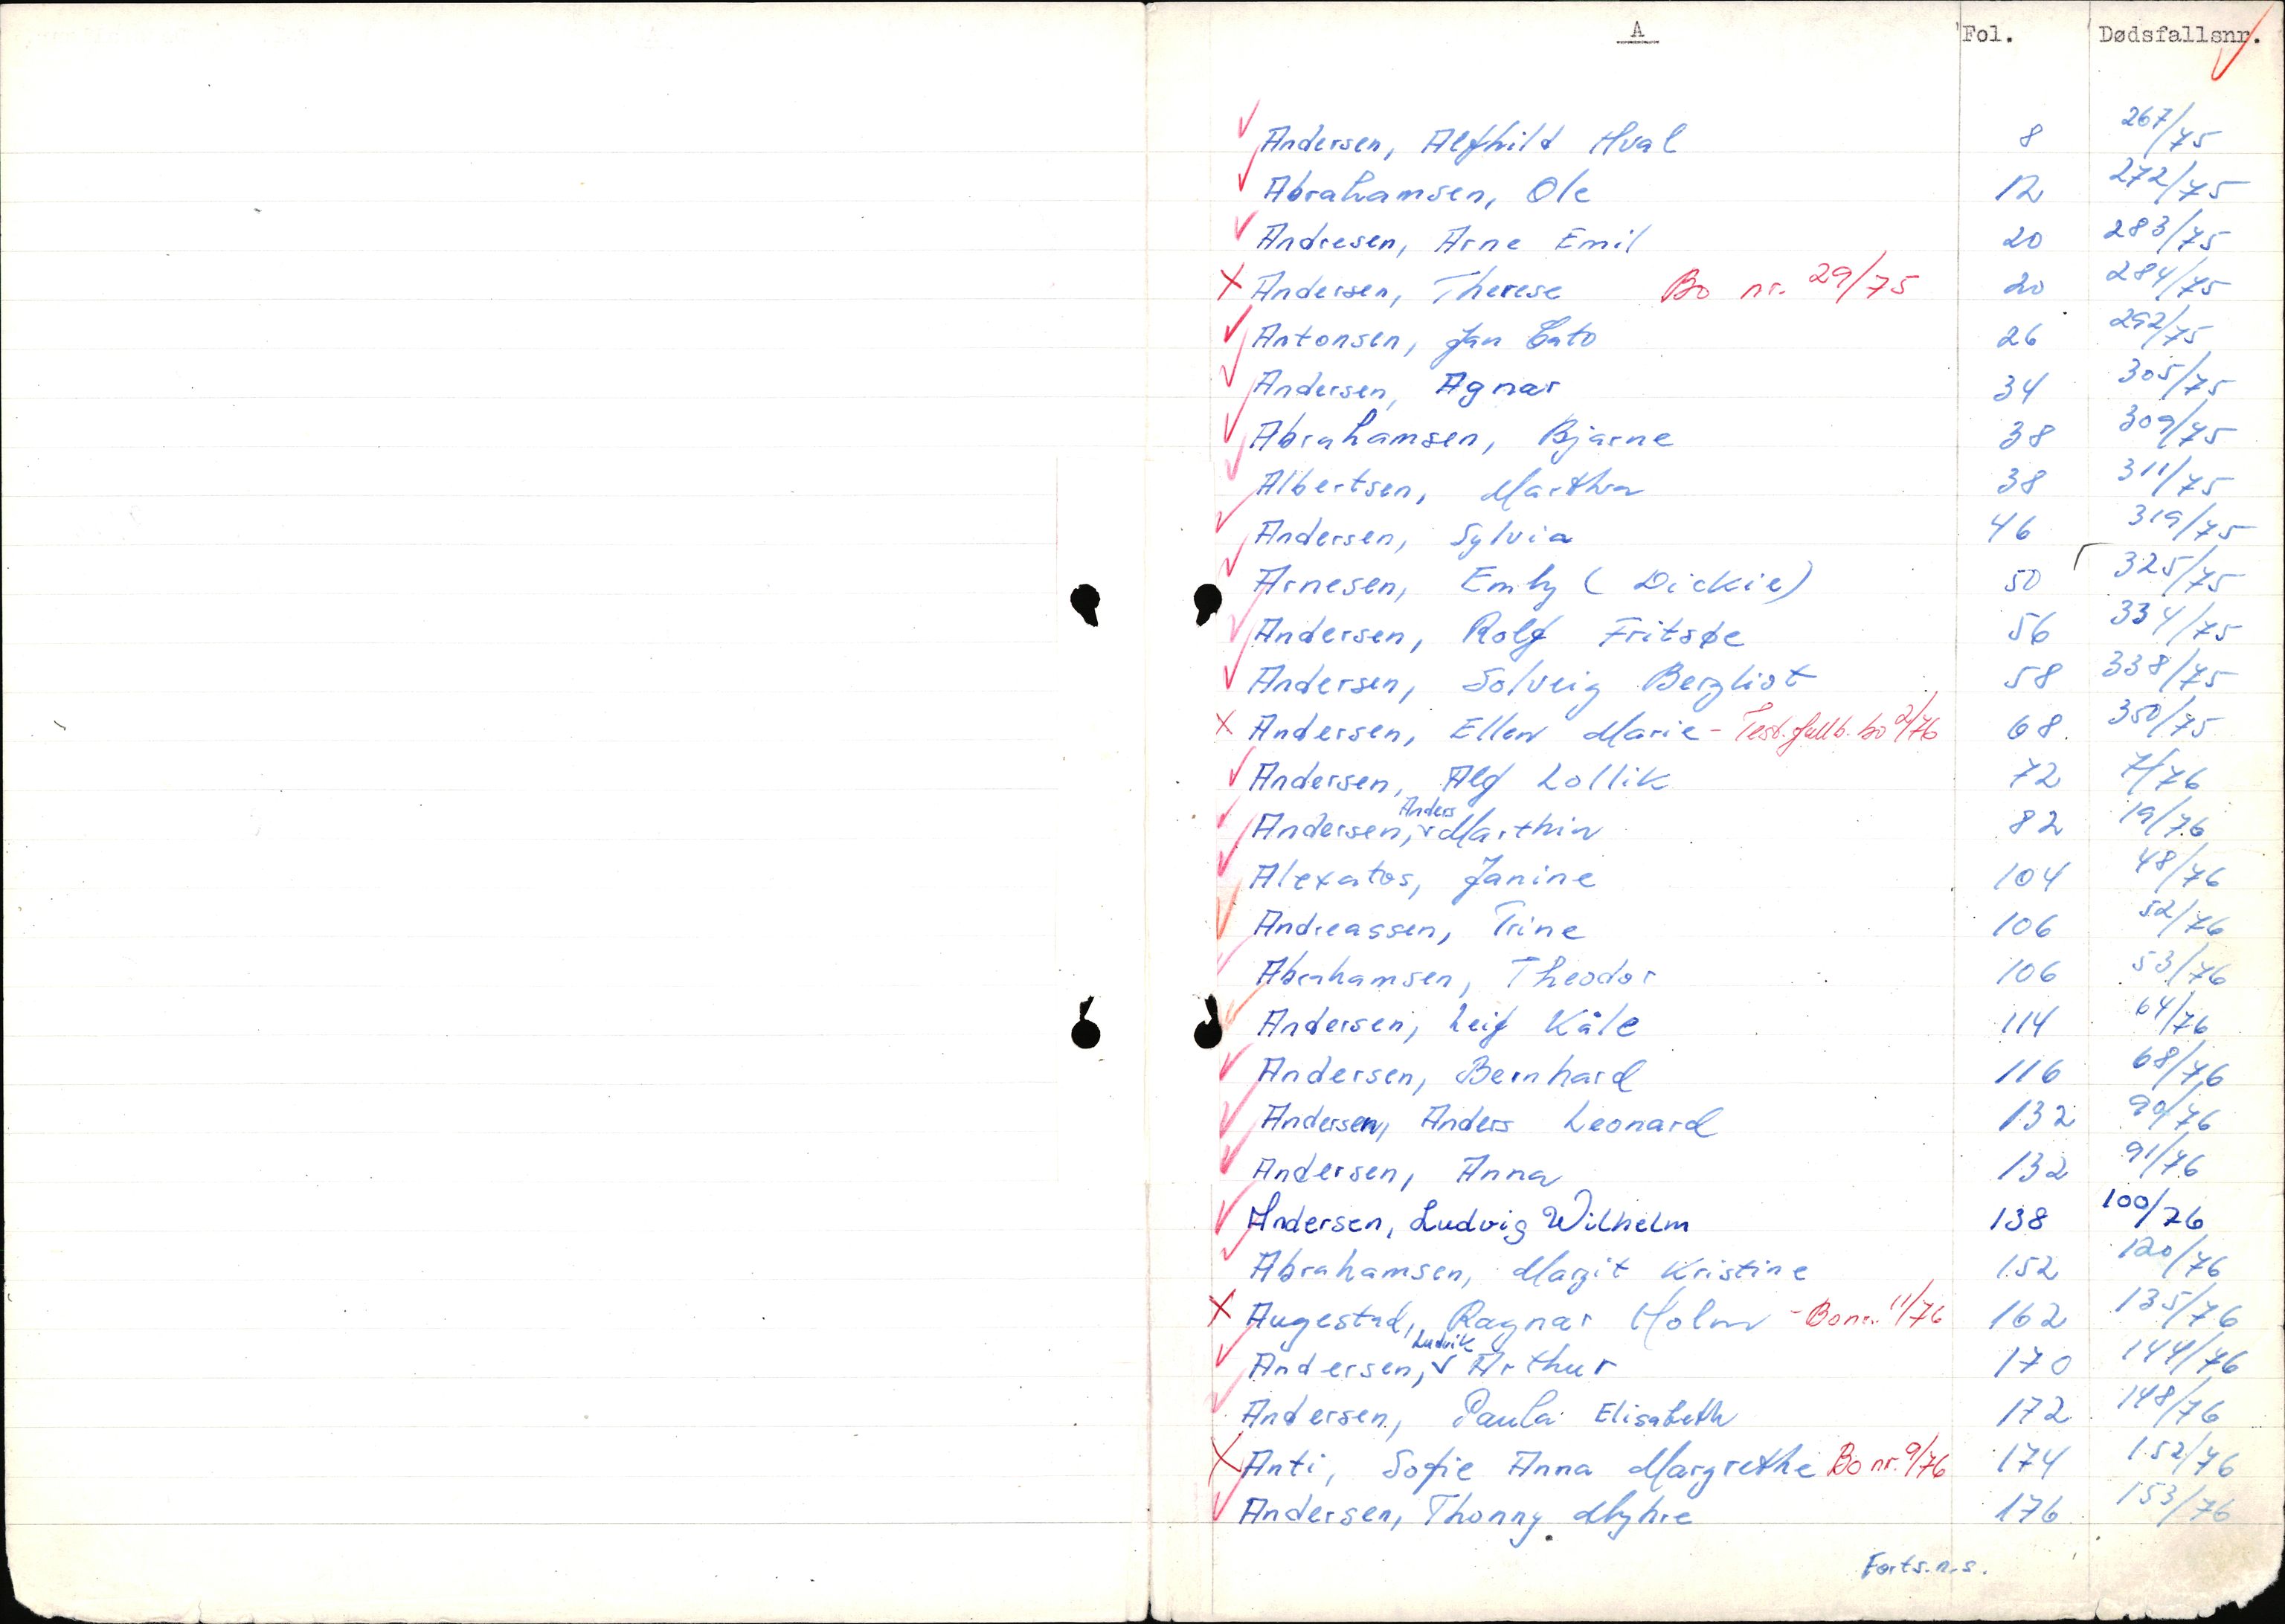 A Fol. Dødsfallsnr.
Andersen, Alfhild Hval 8 267/75
Abrahamsen, Ole 12 272/75
Andresen, Arne Emil 20 283/75
Andersen, Therese Bo nr. 29/75 20 284/75
Antonsen, Jan Cato 26 292/75
Andersen, Agnar 34 305/75
Abrahamsen, Bjarne 38 309/75
Albertsen, Martha 38 311/75
Andersen, Sylvia 46 319/75
Arnesen, Emly (Dickie) 50 325/75
Andersen, Rolf Fritsøe 56 334/75
Andersen, Solveig Bergliot 58 338/75
Andersen, Ellen Marie - Test. fullb. bo 2/76 68 350/75
Andersen, Alf Lollik 72 7/76
Andersen, Anders Marthin 82 19/76
Alexatos, Janine 104 48/76
Andreassen, Trine 106 52/76
Abrahamsen, Theodor 106 53/76
Andersen, Leif Kåle 114 64/76
Andersen, Bernhard 116 68/76
Andersen, Anders Leonard 132 90/76
Andersen, Anna 132 91/76
Andersen, Ludvig Wilhelm 138 100/76
Abrahamsen, Margit Kristine 152 120/76
Augestad, Ragnar Holm - Bo nr. 11/76 162 135/76
Andersen, Ludvik Arthur 170 144/76
Andersen, Paula Elisabeth 172 148/76
Anti, Sofie Anna Margrethe Bo nr. 9/76 174 152/76
Andersen, Thonny Myhre 176 153/76
Forts. n. s.